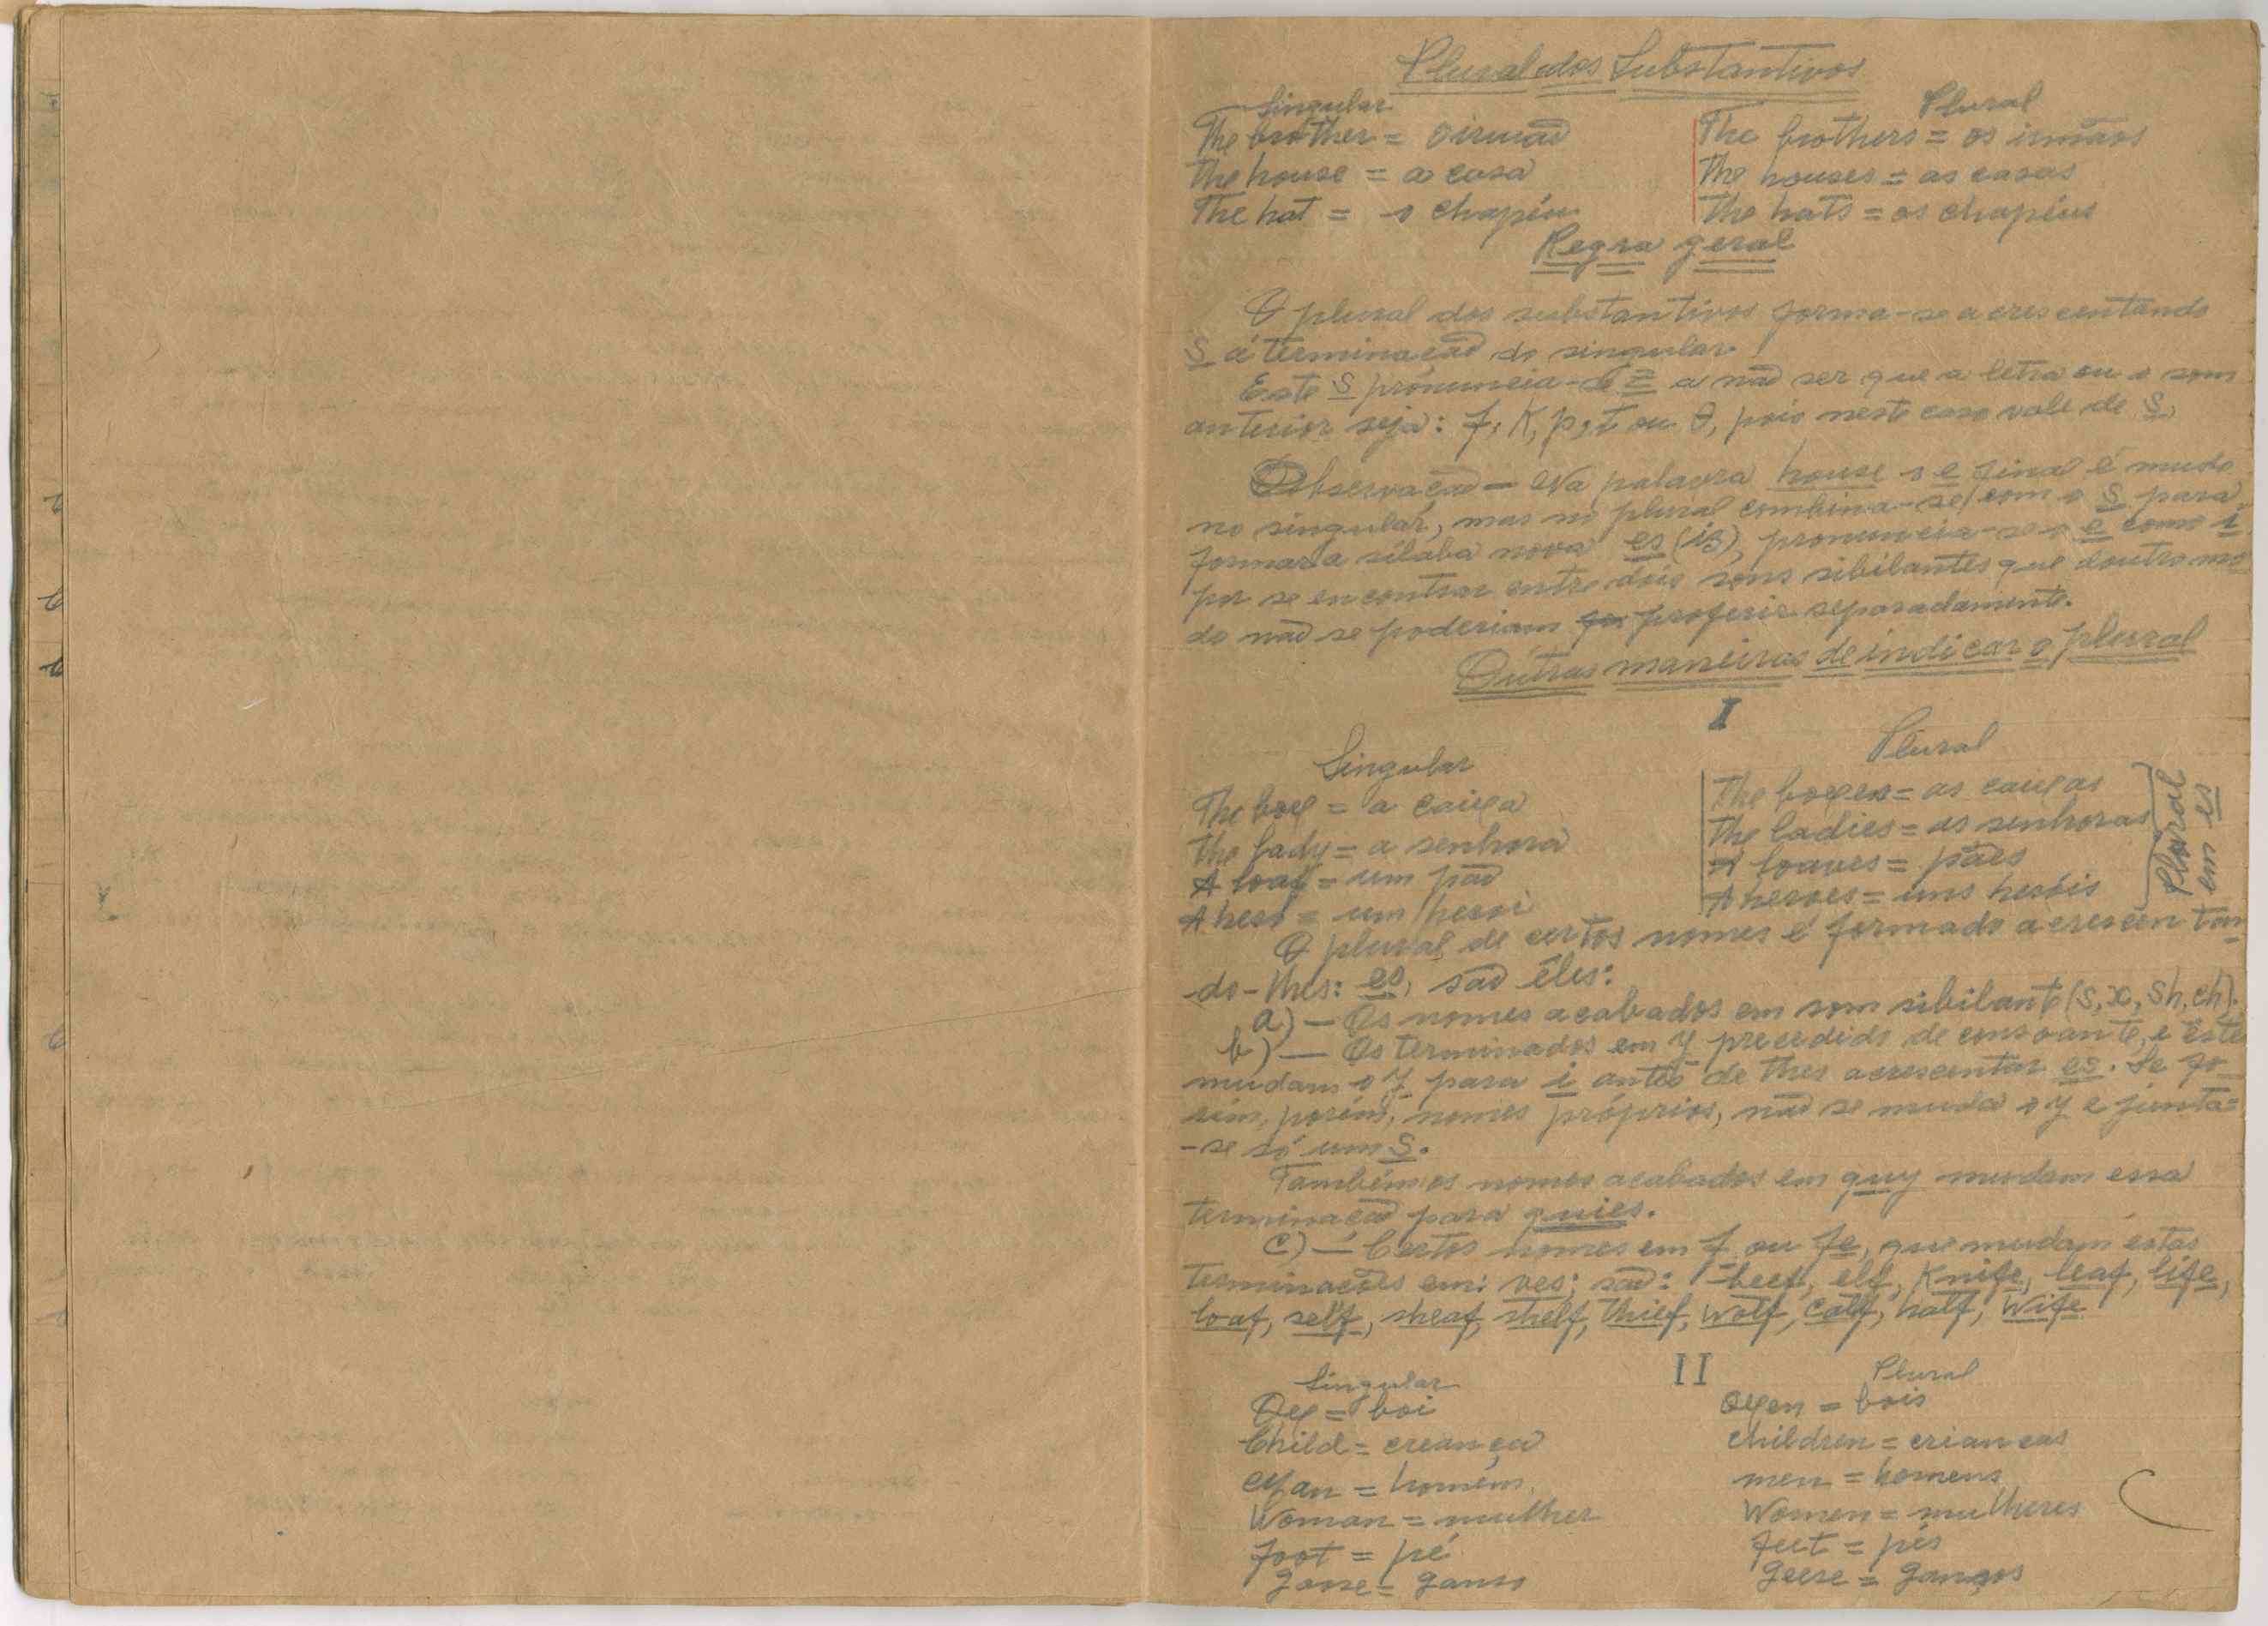 Plural dos Substantivos
Singular Plural
The brother = o irmão The brothers = os irmãos
The house = a casa The houses = as casas
The hat = o chapéu The hats = os chapéus
Regra geral
O plural dos substantivos forma-se acrescentando
S á terminação do singular.
Este S pronuncia-se z a não ser que a letra ou o som
anterior seja: f, K, p, t ou θ, pois neste caso vale de S.
Observação — Na palavra house o e final é mudo
no singular, mas no plural combina-se com o S para
formar a sílaba nova es (iz), pronuncia-se o e como i
por se encontrar entre dois sons sibilantes que doutro mo
do não se poderiam proferir separadamente.
Outras maneiras de indicar o plural
I
Singular Plural
The box = a caixa The boxes = as caixas
The lady = a senhora The ladies = as senhoras
A loaf = um pão A loaves = pães
A hero = um heroi A heroes = uns heróis
Plural em es
O plural de certos nomes é formado acrescentan
do-lhes: es, são êles:
a) — Os nomes acabados em som sibilante (S, x, Sh, ch).
b) — Os terminados em y precedido de consoante, e êste
mudam o y para i antes de lhes acrescentar es. Se fo
rem, porém, nomes próprios, não se muda o y e junta-
-se só um S.
Também os nomes acabados em quy mudam essa
terminação para quies.
c) — Certos nomes em f ou fe, que mudam estas
terminações em: ves; são: beef, elf, Knife, leaf, life,
loaf, self, sheaf, shelf, thief, Wolf, Calf, half, Wife
II
Singular Plural
Ox = boi Oxen = bois
Child = creança children = crianças
Man = homém men = homens
Woman = mulher Women = mulheres
foot = pé feet = pés
goose = ganso geese = gansos